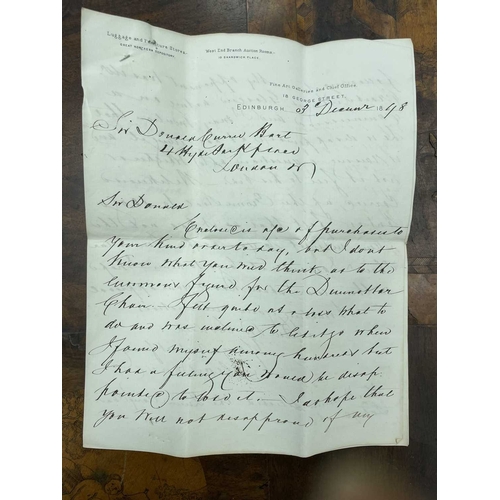 Luggage and Furniture Stores
West End Branch Auction Rooms
Fine Art Galleries and Chief Office
18 GEORGE STREET,
EDINBURGH 3d 1898
Sir Donald Currie Bart
4 Hyde Park place
London W
Sir Donald
Enclosed is a/c of purchases to
your kind order to day, but I dont
know what you will think as to the
enormous figure for the Dunnottar
Chair. I felt quite at a loss what to
do and was inclined to let it go when
I found myself among hundreds but
I had a feeling you would be disap
pointed to lose it. — I do hope that
you will not disapprove of my